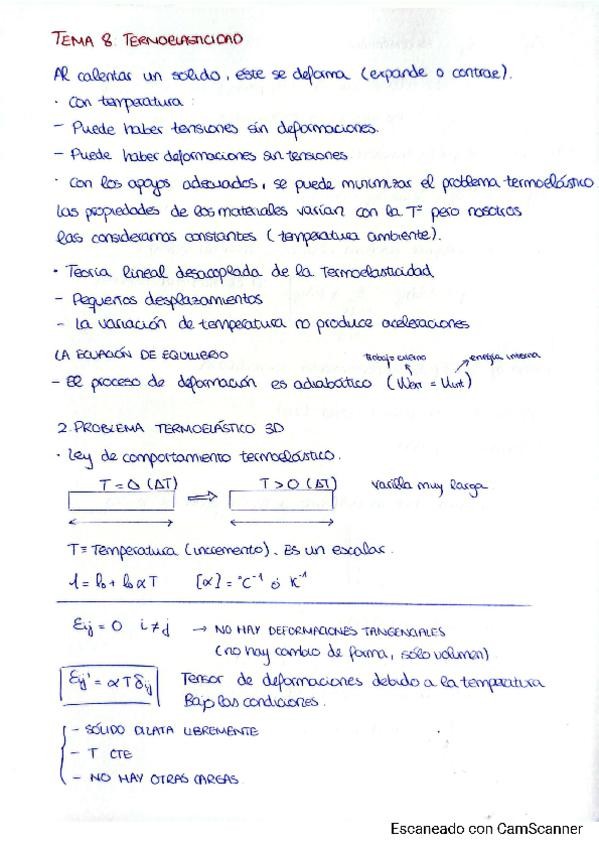 TEMA 8: TERMOELASTICIDAD
Al calentar un sólido, éste se deforma (expande o contrae).
· Con temperatura:
– Puede haber tensiones sin deformaciones.
– Puede haber deformaciones sin tensiones
· Con los apoyos adecuados, se puede minimizar el problema termoelástico
Las propiedades de los materiales varían con la Tª pero nosotros
las consideramos constantes (temperatura ambiente).
· Teoría lineal desacoplada de la Termoelasticidad
– Pequeños desplazamientos
– La variación de temperatura no produce aceleraciones
LA ECUACIÓN DE EQUILIBRIO
trabajo externo energía interna
– El proceso de deformación es adiabático (Wext = Uint)
2. PROBLEMA TERMOELÁSTICO 3D
· Ley de comportamiento termoelástico.
T = 0 (ΔT) ⇒ T > 0 (ΔT) varilla muy larga
T ≡ Temperatura (incremento). Es un escalar.
l = l₀ + l₀ α T [α] = °C⁻¹ ó K⁻¹
εij = 0 i ≠ j → NO HAY DEFORMACIONES TANGENCIALES
(no hay cambio de forma, sólo volumen)
εij' = α T δij Tensor de deformaciones debido a la temperatura
Bajo las condiciones.
– SÓLIDO DILATA LIBREMENTE
– T CTE
– NO HAY OTRAS CARGAS
Escaneado con CamScanner